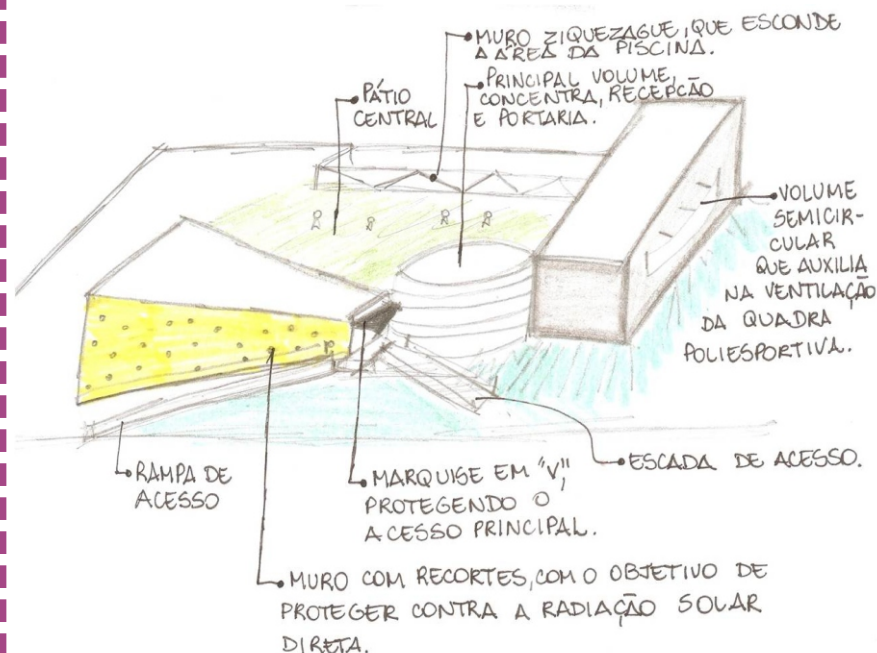 MURO ZIQUEZAGUE, QUE ESCONDE
A ÁREA DA PISCINA.
PRINCIPAL VOLUME,
CONCENTRA, RECEPÇÃO
E PORTARIA.
PÁTIO
CENTRAL
VOLUME
SEMICIR-
CULAR
QUE AUXILIA
NA VENTILAÇÃO
DA QUADRA
POLIESPORTIVA.
ESCADA DE ACESSO.
RAMPA DE
ACESSO
MARQUISE EM "V",
PROTEGENDO O
ACESSO PRINCIPAL.
MURO COM RECORTES, COM O OBJETIVO DE
PROTEGER CONTRA A RADIAÇÃO SOLAR
DIRETA.